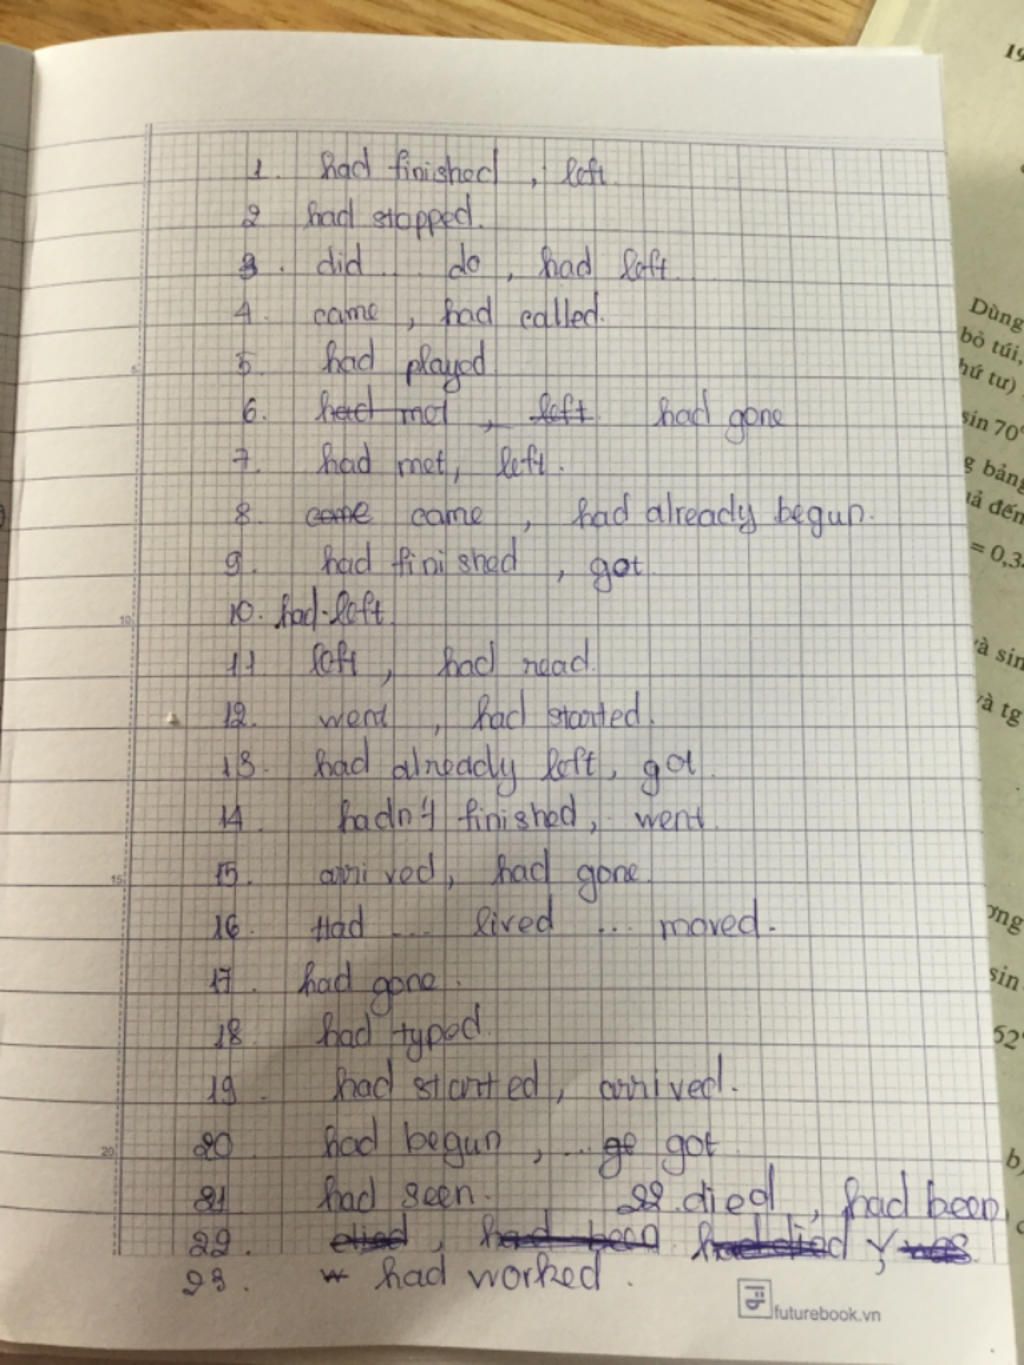 1. had finished, left
2 had stopped.
3. did .. do, had left.
4. came, had called.
5 had played
6. had met, left had gone
7. had met, left.
8. come came, had already begun.
9. had finished, got
10. had left
11 left, had read.
12. went, had started.
13. had already left, got.
14 hadn't finished, went.
15. arrived, had gone.
16. Had ... lived ... moved.
17. had gone.
18 had typed.
19. had started, arrived.
20 had begun, ... ge got
21 had seen. 22. died, had been
22. died, had been had died,
23. had worked.
futurebook.vn
5
10
15
20
19
Dùng
bỏ túi,
hứ tư)
sin 70°
g bảng
uả đến
= 0,3
và sin
và tg
ơng
sin
52°
b)